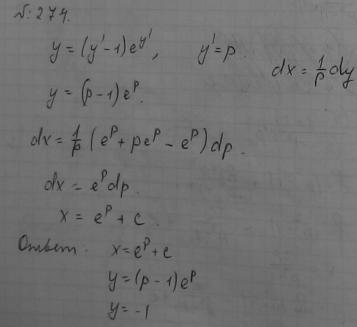 N: 274.
y = (y' - 1) e^{y'}, y' = p. dx = 1/p dy
y = (p - 1) e^p.
dx = 1/p (e^p + pe^p - e^p) dp.
dx = e^p dp.
x = e^p + c.
Ответ. x = e^p + c
y = (p - 1) e^p
y = -1